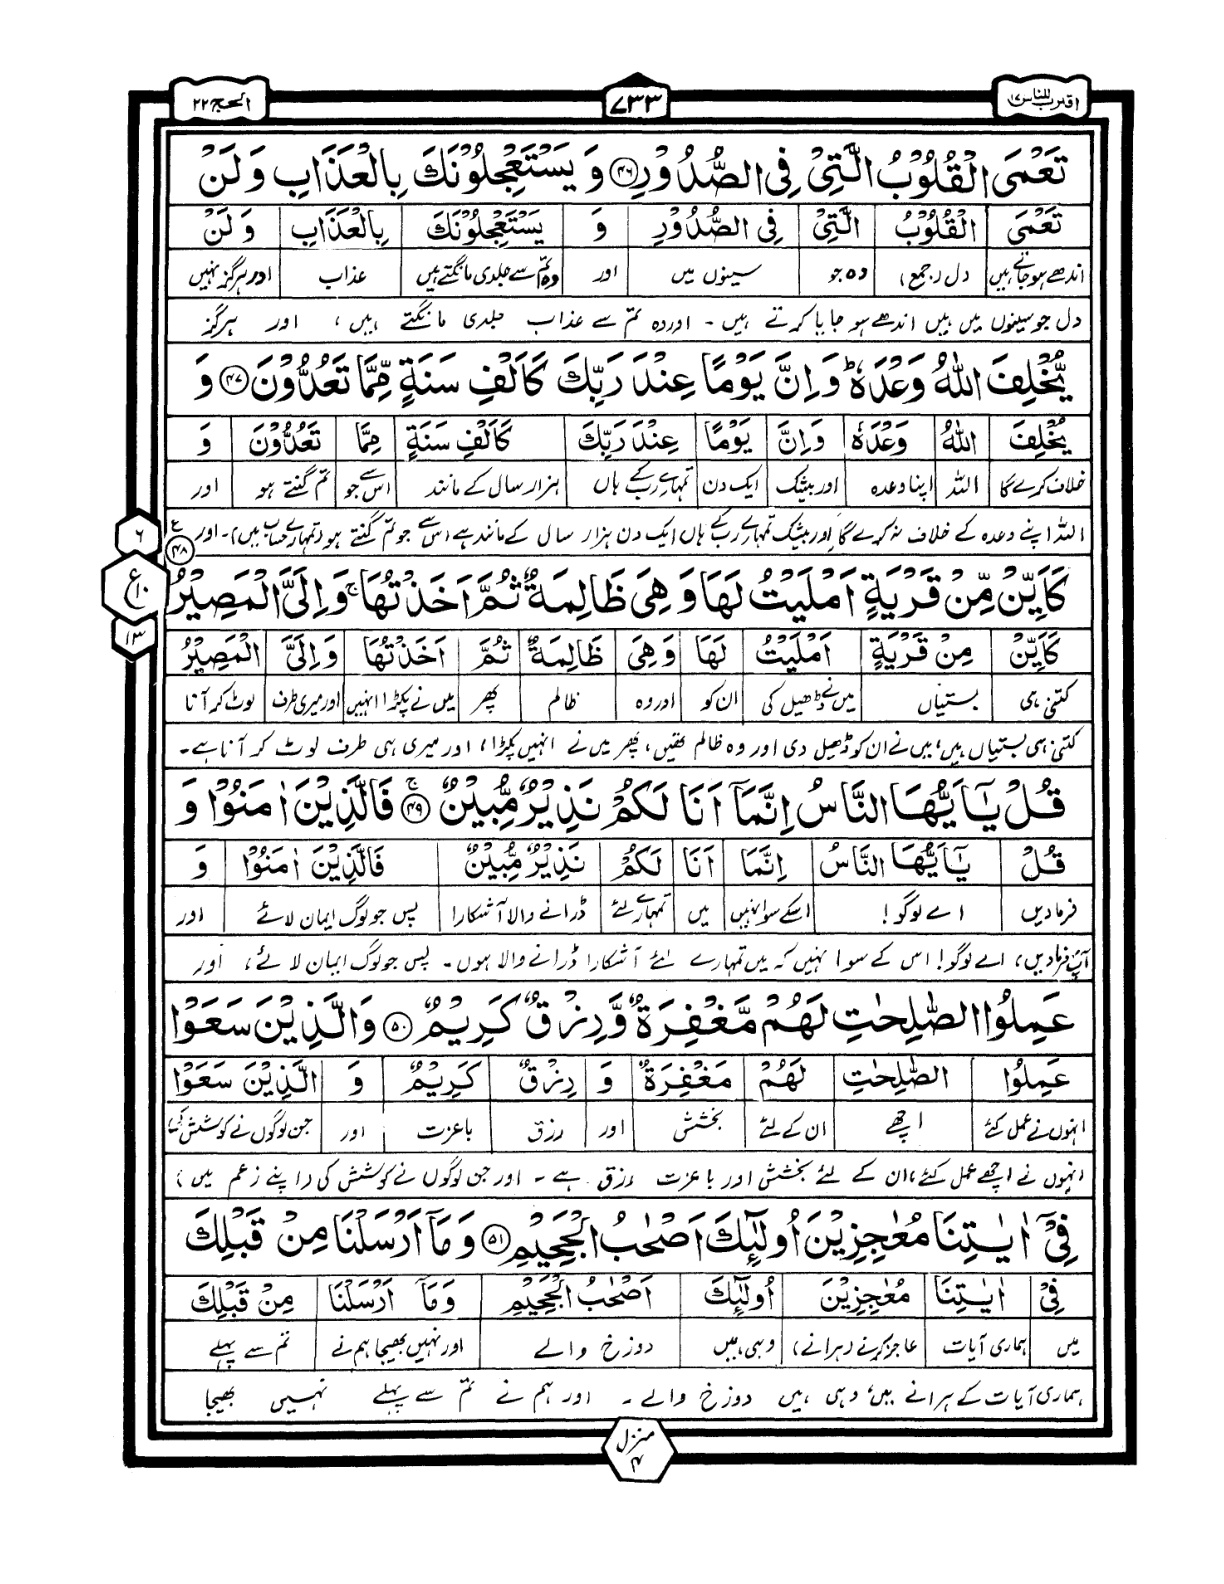 اقترب للناس ١٧
٧٣٣
الحج ٢٢
تَعْمَى الْقُلُوْبُ الَّتِيْ فِي الصُّدُوْرِ ﴿۴۶﴾ وَ يَسْتَعْجِلُوْنَكَ بِالْعَذَابِ وَ لَنْ
تَعْمَى الْقُلُوْبُ الَّتِيْ فِي الصُّدُوْرِ وَ يَسْتَعْجِلُوْنَكَ بِالْعَذَابِ وَ لَنْ
اندھے ہوجاتے ہیں دل (جمع) وہ جو سینوں میں اور وہ تم سے جلدی مانگتے ہیں عذاب اور ہرگز نہیں
دل جو سینوں میں ہیں اندھے ہو جایا کرتے ہیں ۔ اور وہ تم سے عذاب جلدی مانگتے ہیں ، اور ہرگز
يُّخْلِفَ اللّٰهُ وَعْدَهٗ ؕ وَ اِنَّ يَوْمًا عِنْدَ رَبِّكَ كَاَلْفِ سَنَةٍ مِّمَّا تَعُدُّوْنَ ﴿۴۷﴾ وَ
يُخْلِفَ اللّٰهُ وَعْدَهٗ وَ اِنَّ يَوْمًا عِنْدَ رَبِّكَ كَاَلْفِ سَنَةٍ مِمَّا تَعُدُّوْنَ وَ
خلاف کرے گا اللہ اپنا وعدہ اور بیشک ایک دن تمہارے رب کے ہاں ہزار سال کے مانند اس سے جو تم گنتے ہو اور
اللہ اپنے وعدہ کے خلاف نہ کرے گا اور بیشک تمہارے رب کے ہاں ایک دن ہزار سال کے مانند ہے اس سے جو تم گنتے ہو (تمہارے حساب میں)۔ اور
ع
۴۸
٦
ع ١٠
١٣
كَاَيِّنْ مِّنْ قَرْيَةٍ اَمْلَيْتُ لَهَا وَ هِيَ ظَالِمَةٌ ثُمَّ اَخَذْتُهَا ۚ وَ اِلَيَّ الْمَصِيْرُ
كَاَيِّنْ مِنْ قَرْيَةٍ اَمْلَيْتُ لَهَا وَهِيَ ظَالِمَةٌ ثُمَّ اَخَذْتُهَا وَ اِلَيَّ الْمَصِيْرُ
کتنی ہی بستیاں میں نے ڈھیل کی ان کو اور وہ ظالم پھر میں نے پکڑا انہیں اور میری طرف لوٹ کر آنا
کتنی ہی بستیاں ہیں، میں نے ان کو ڈھیل دی اور وہ ظالم تھیں، پھر میں نے انہیں پکڑا، اور میری ہی طرف لوٹ کر آنا ہے۔
قُلْ يٰٓاَيُّهَا النَّاسُ اِنَّمَآ اَنَا لَكُمْ نَذِيْرٌ مُّبِيْنٌ ﴿۴۹﴾ ۚ فَالَّذِيْنَ اٰمَنُوْا وَ
قُلْ يٰٓاَيُّهَا النَّاسُ اِنَّمَا اَنَا لَكُمْ نَذِيْرٌ مُّبِيْنٌ فَالَّذِيْنَ اٰمَنُوْا وَ
فرمادیں اے لوگو! اسکے سوا نہیں میں تمہارے لئے ڈرانے والا آشکارا پس جو لوگ ایمان لائے اور
آپؐ فرمادیں، اے لوگو! اس کے سوا نہیں کہ میں تمہارے لئے آشکارا ڈرانے والا ہوں۔ پس جو لوگ ایمان لائے، اور
عَمِلُوا الصّٰلِحٰتِ لَهُمْ مَّغْفِرَةٌ وَّ رِزْقٌ كَرِيْمٌ ﴿۵۰﴾ وَ الَّذِيْنَ سَعَوْا
عَمِلُوا الصّٰلِحٰتِ لَهُمْ مَغْفِرَةٌ وَ رِزْقٌ كَرِيْمٌ وَ الَّذِيْنَ سَعَوْا
انہوں نے عمل کئے اچھے ان کے لئے بخشش اور رزق باعزت اور جن لوگوں نے کوشش کی
انہوں نے اچھے عمل کئے، ان کے لئے بخشش اور باعزت رزق ہے ۔ اور جن لوگوں نے کوشش کی (اپنے زعم میں)
فِيْٓ اٰيٰتِنَا مُعٰجِزِيْنَ اُولٰٓئِكَ اَصْحٰبُ الْجَحِيْمِ ﴿۵۱﴾ وَ مَآ اَرْسَلْنَا مِنْ قَبْلِكَ
فِيْ اٰيٰتِنَا مُعٰجِزِيْنَ اُولٰٓئِكَ اَصْحٰبُ الْجَحِيْمِ وَمَآ اَرْسَلْنَا مِنْ قَبْلِكَ
میں ہماری آیات عاجز کرنے (ہرانے) وہی ہیں دوزخ والے اور نہیں بھیجا ہم نے تم سے پہلے
ہماری آیات کے ہرانے میں، وہی ہیں دوزخ والے ۔ اور ہم نے تم سے پہلے نہیں بھیجا
منزل ۴